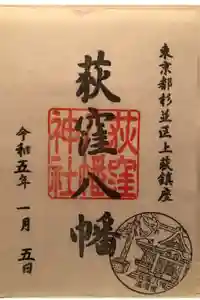 東京都杉並区上荻鎮座
荻窪八幡
荻窪八幡神社
令和五年 一月 五日